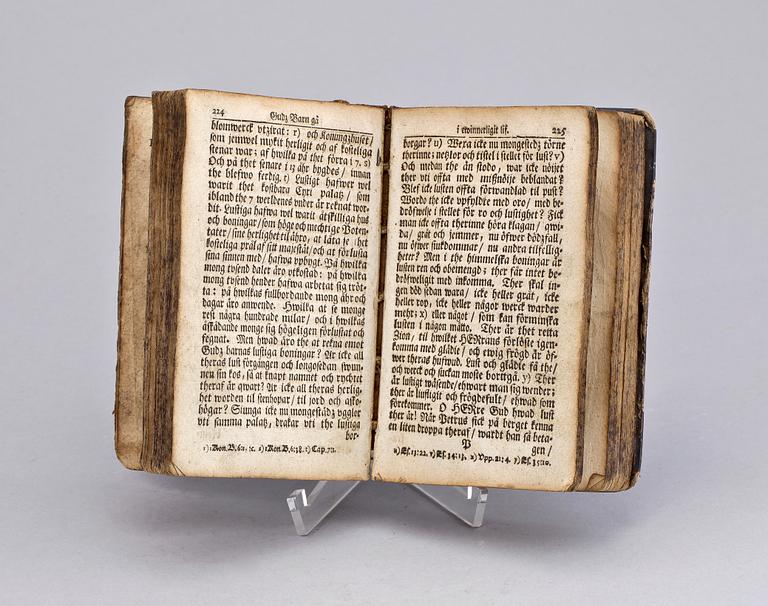 224
Gudz Barn gå
blomwerck vtzirat: r) och Konungzhuset/
som jemwel mykit herligit och af kosteliga
stenar war; af hwilka på thet förra i 7. s)
Och på thet senare i 13 åhr bygdes/ innan
the blefwo ferdig. t) Lustigt hafwer wel
warit thet kostbara Cyri palatz/ som
ibland the 7 werldenes vnder är reknat wor-
dit. Lustiga hafwa wel warit åtskilliga hus
och boningar/ som höge och mechtige Poten-
tater/ sine herlighet til åhro, at låta se thet
kosteliga prål af sitt majestät/ och at förlusta
sina sinnen med/ hafwa vpbygt. På hwilka
mong tvsend daler äro vtkostad: på hwilka
mong tvsend hender hafwa arbetat sig tröt-
ta: på hwilkas fullbordande mong åhr och
dagar äro anwende. Hwilka at se monge
rest några hundrade milar/ och i hwilkas
åskådande monge sig högeligen förlustat och
fegnat. Men hwad äro the at rekna emot
Gudz barnas lustiga boningar? Är icke all
theras lust förgången och longosedan swun-
nen sin kos, så at knapt namnet och rychtet
theraf är qwart? Är icke all theras herlig-
het worden til stenhopar/ til jord och asko-
högar? Siunga icke nu mongestädz vggler
vti samma palatz, drakar vti the lustiga
bor-
r) 1 Kon. B. 6: 11. s) 1 Kon. B. 6: 38. t) Cap. 7: 1.
i ewinnerligit lif.
225
borgar? u) Wera icke nu mongestedz törne
therinne; nezlor och tistel i stellet för lust? v)
Och medan the än stodo, war icke nöjet
ther vti offta med mißnöje beblandat?
Blef icke lusten offta förwandlad til pust?
Wordo the icke vpfyldte med oro/ med be-
dröfwelse i stellet för ro och lustighet? Fick
man icke offta therinne höra klagan/ qwi-
da/ gråt och jemmer, nu öfwer dödzfall,
nu öfwer siukdommar/ nu andra tilfellig-
heter? Men i the himmelska boningar är
lusten ren och obemengd; ther får intet be-
dröfweligit med inkomma. Ther skal in-
gen död sedan wara/ icke heller gråt, icke
heller rop, icke heller något werck warder
mehr: x) eller något/ som kan förminska
lusten i någon måtto. Ther är thet retta
Zion, til hwilket HERrans förlöste igen-
komma med glädie/ och ewig frögd är öf-
wer theras hufwud. Lust och glädie få the/
och werck och suckan moste borttgå. y) Ther
är lustigt wäsende/ ehwart man sig wender;
ther är liufligit och frögdefult/ ehwad som
förekommer. O HERre Gud hwad lust
ther är! När Petrus fick på berget kenna
en liten droppa theraf/ wardt han så beta-
P
gen/
u) Es. 13: 22. v) Es. 34: 13. x) Vpp. 21: 4. y) Es. 35: 10.